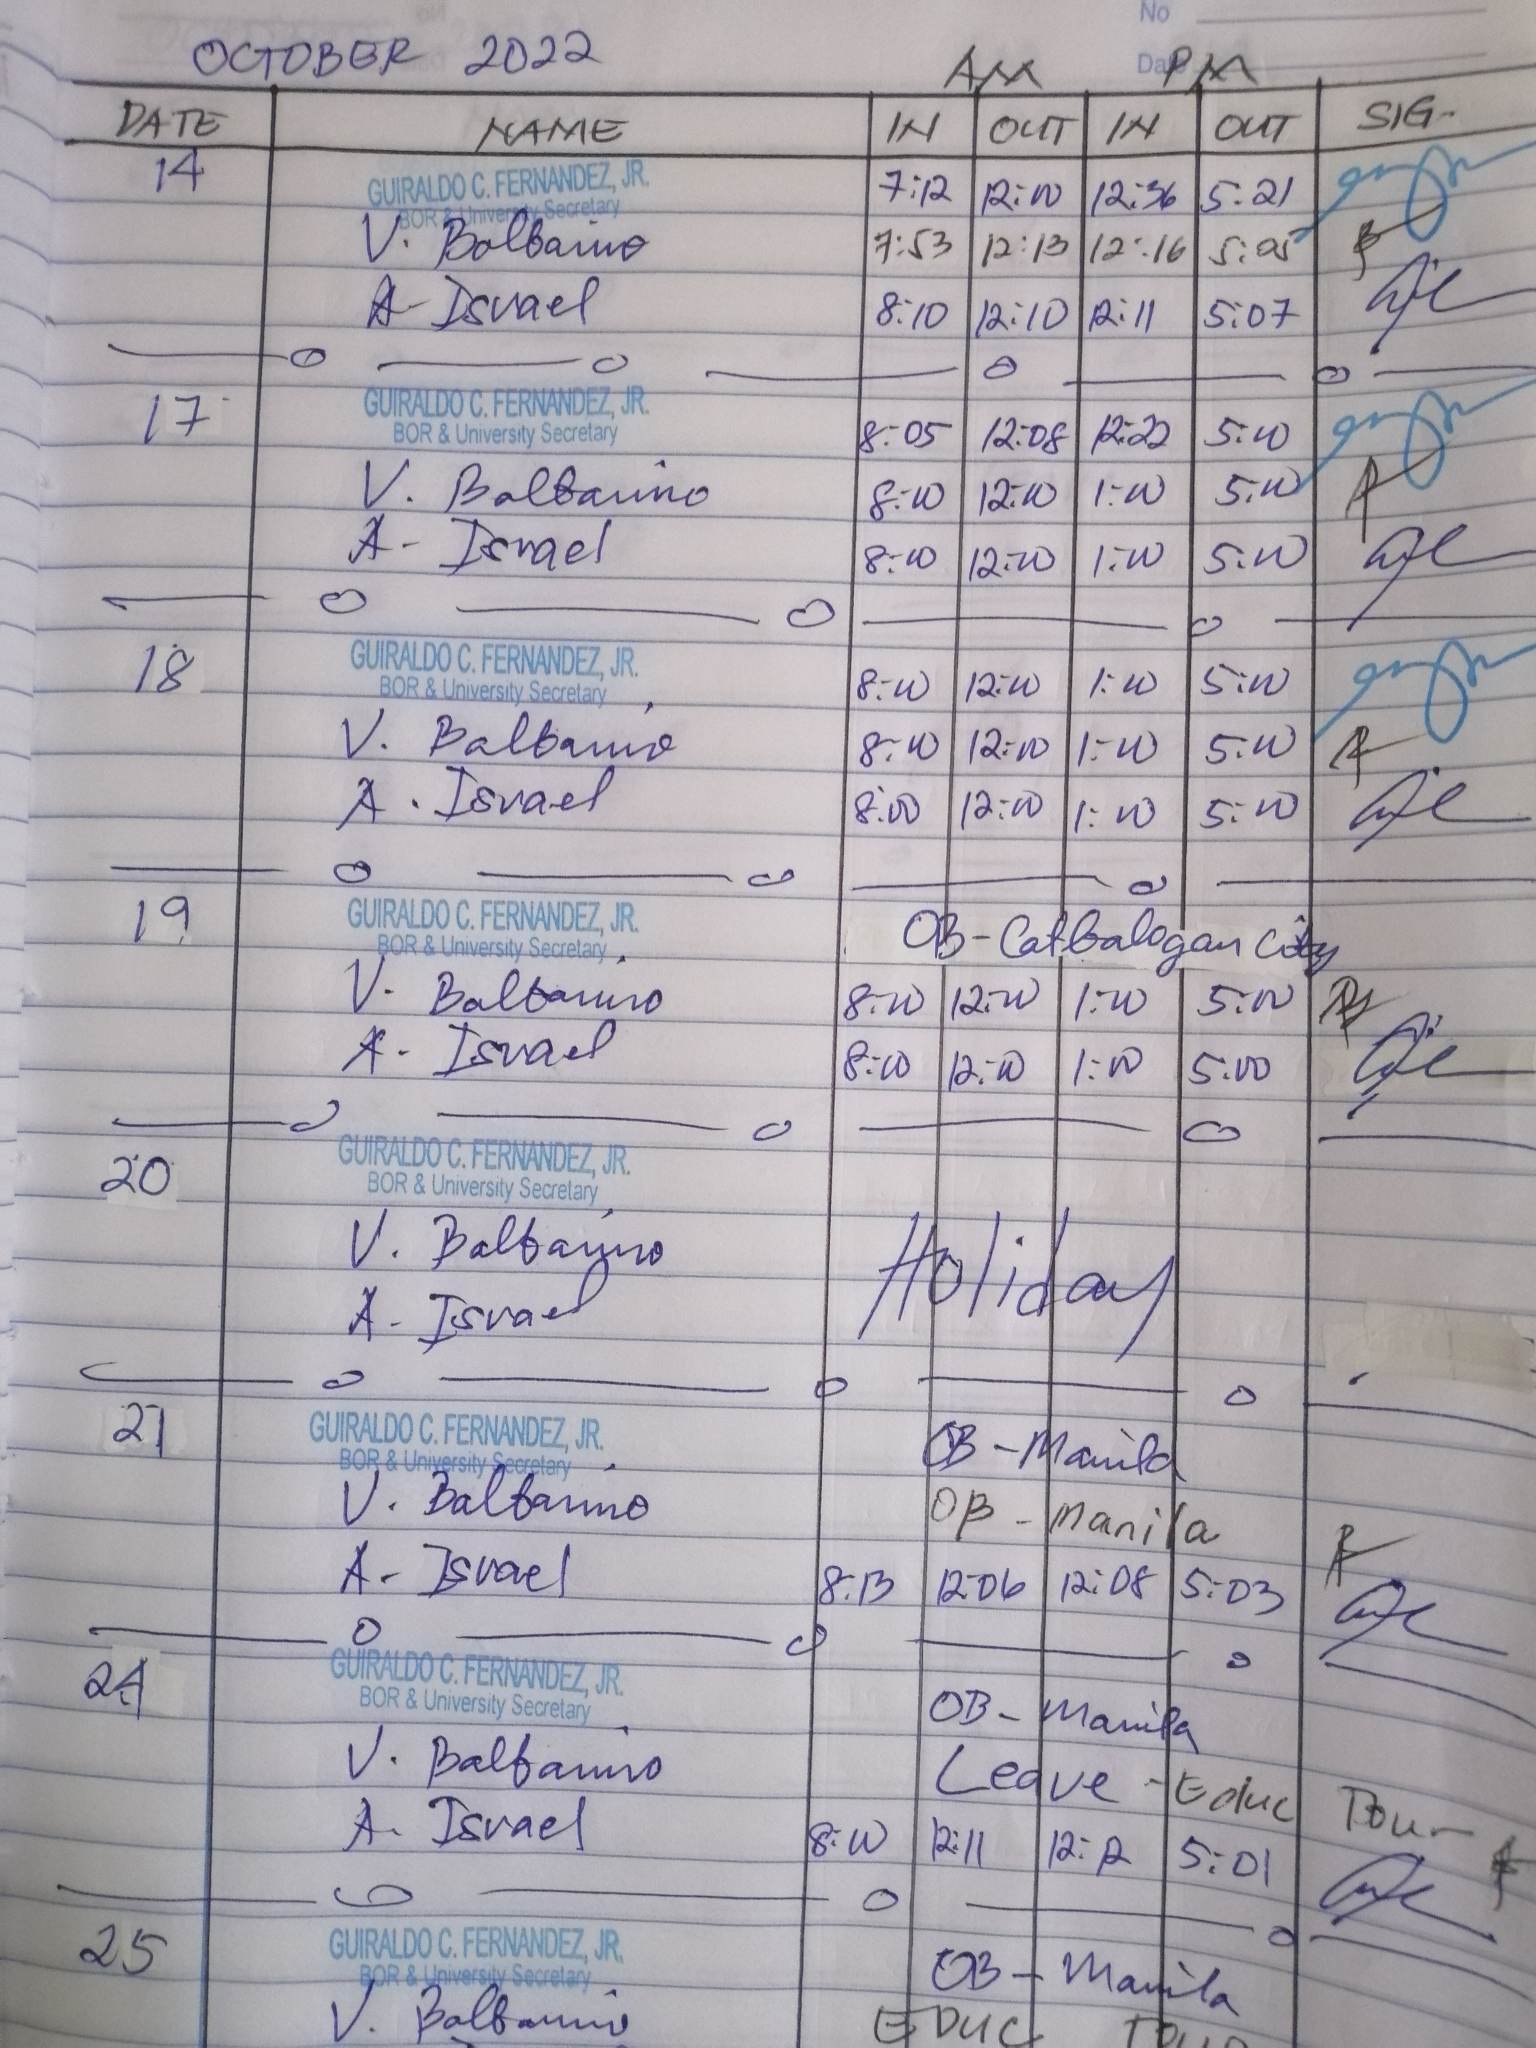 No
Date
OCTOBER 2022 AM PM
DATE NAME IN OUT IN OUT SIG.
14 GUIRALDO C. FERNANDEZ, JR. 7:12 12:00 12:36 5:21
BOR & University Secretary
V. Balbarino 7:53 12:13 12:16 5:05
A. Israel 8:10 12:10 12:11 5:07
17 GUIRALDO C. FERNANDEZ, JR. 8:05 12:08 12:22 5:00
BOR & University Secretary
V. Balbarino 8:00 12:00 1:00 5:00
A. Israel 8:00 12:00 1:00 5:00
18 GUIRALDO C. FERNANDEZ, JR. 8:00 12:00 1:00 5:00
BOR & University Secretary
V. Balbarino 8:00 12:00 1:00 5:00
A. Israel 8:00 12:00 1:00 5:00
19 GUIRALDO C. FERNANDEZ, JR. OB - Catbalogan City
BOR & University Secretary
V. Balbarino 8:00 12:00 1:00 5:00
A. Israel 8:00 12:00 1:00 5:00
20 GUIRALDO C. FERNANDEZ, JR.
BOR & University Secretary
V. Balbarino
Holiday
A. Israel
21 GUIRALDO C. FERNANDEZ, JR. OB - Manila
BOR & University Secretary
V. Balbarino OB - Manila
A. Israel 8:13 12:06 12:08 5:03
24 GUIRALDO C. FERNANDEZ, JR. OB - Manila
BOR & University Secretary
V. Balbarino Leave - Educ Tour
A. Israel 8:00 12:11 12:12 5:01
25 GUIRALDO C. FERNANDEZ, JR. OB - Manila
BOR & University Secretary
V. Balbarino EDUC TOUR